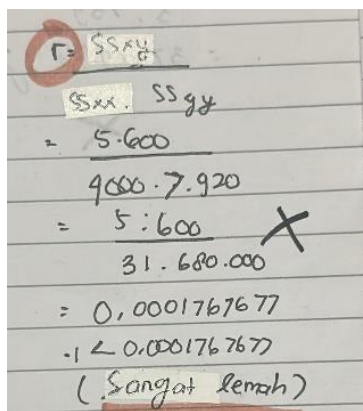 r = SSxy
SSxx. SSyy
= 5.600
4000.7.920
= 5:600
31.680.000
= 0,0001767677
.1 < 0.0001767677
(Sangat lemah)